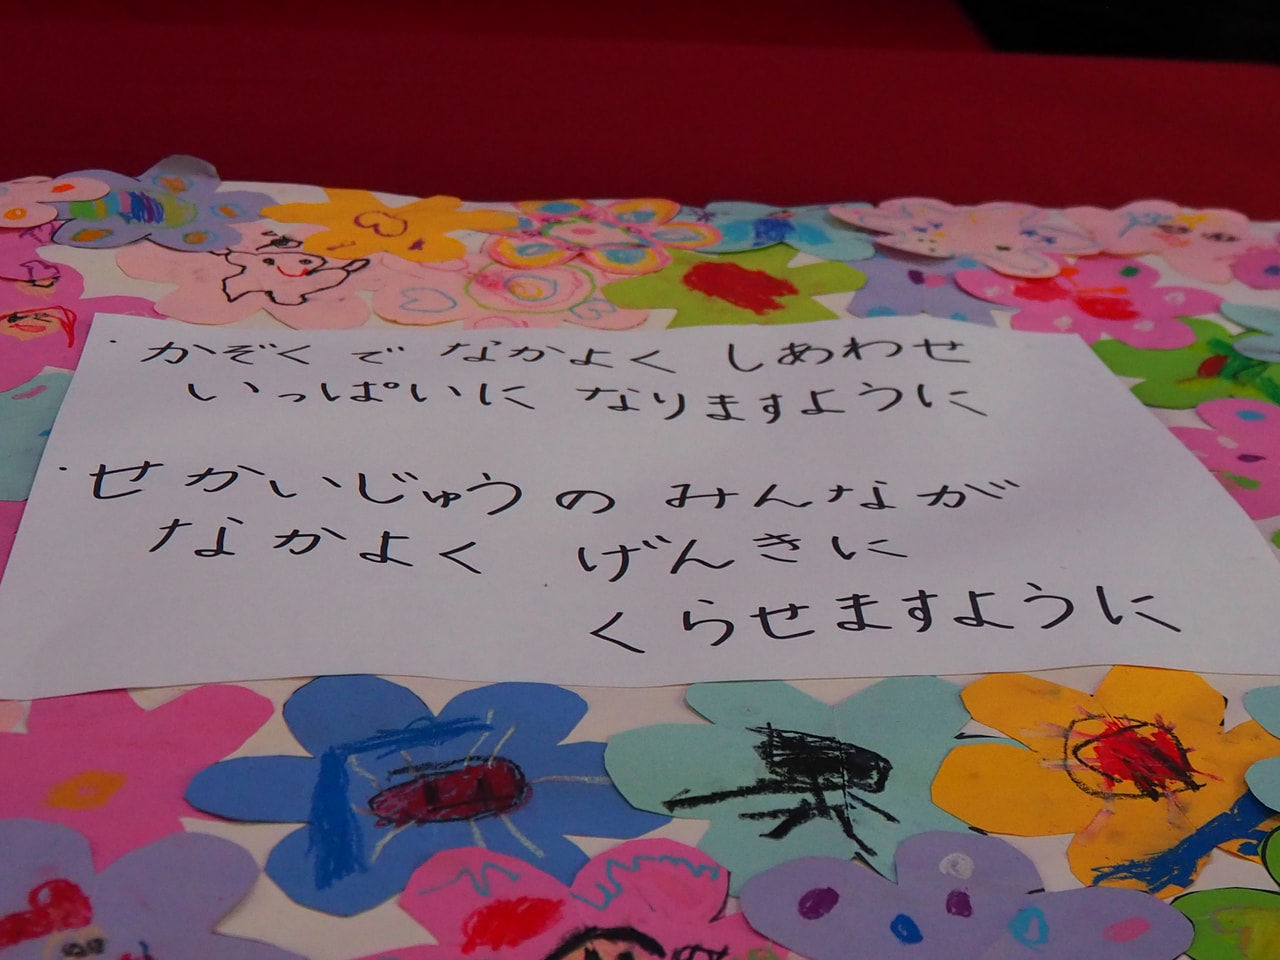 ・かぞくで なかよく しあわせ
いっぱいに なりますように
・せかいじゅうの みんなが
なかよく げんきに
くらせますように